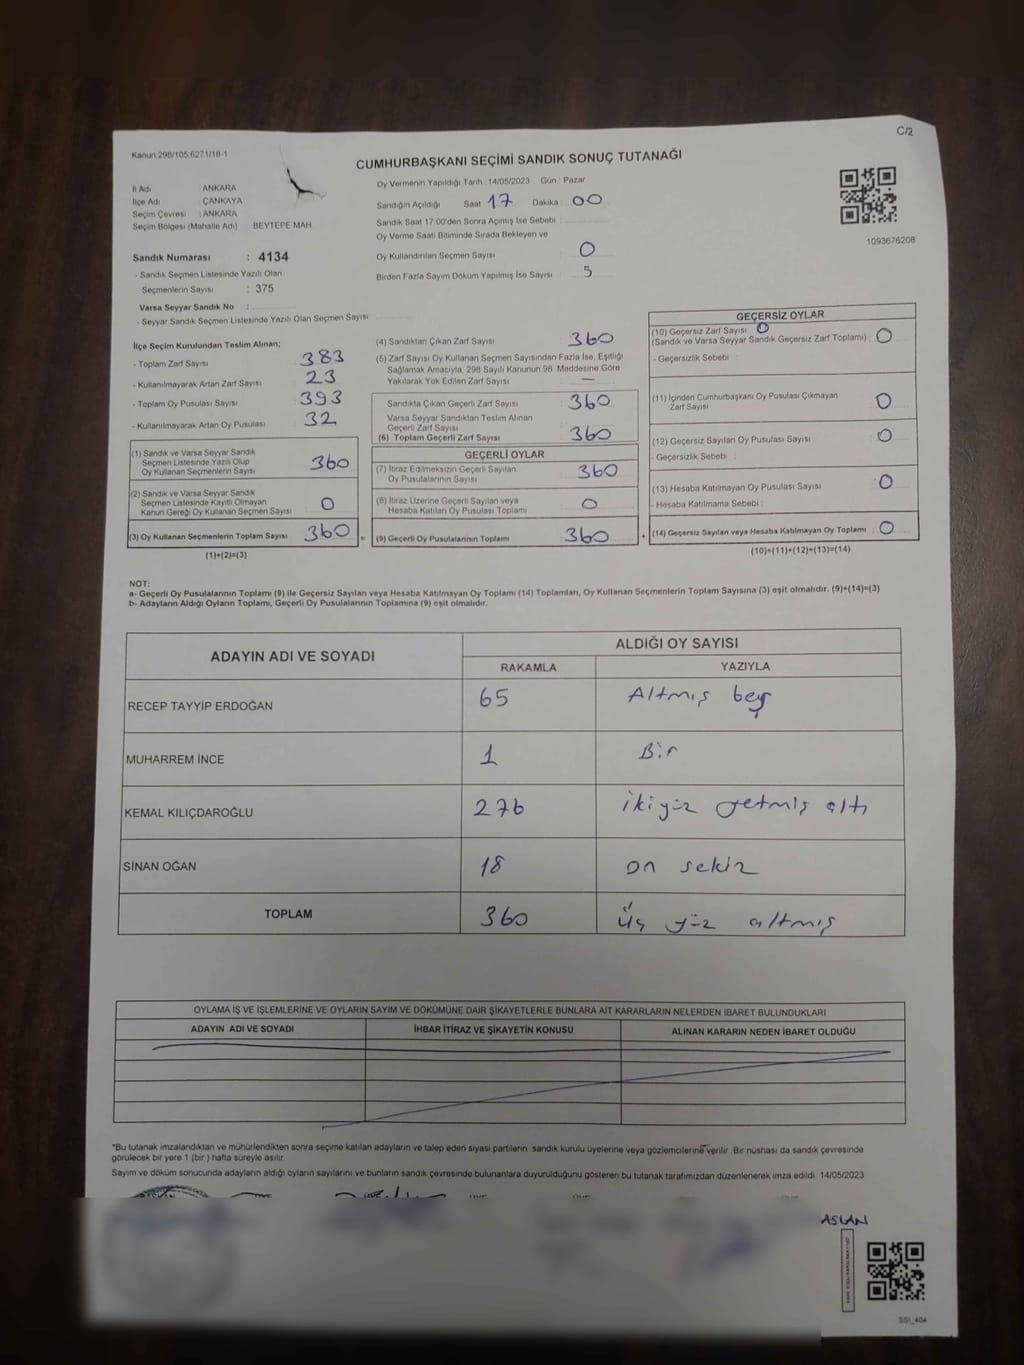 C/2
Kanun:298/105,6271/18-1
CUMHURBAŞKANI SEÇİMİ SANDIK SONUÇ TUTANAĞI
İl Adı ANKARA
İlçe Adı ÇANKAYA
Seçim Çevresi : ANKARA
Seçim Bölgesi (Mahalle Adı) BEYTEPE MAH
Sandık Numarası : 4134
- Sandık Seçmen Listesinde Yazılı Olan
Seçmenlerin Sayısı : 375
Varsa Seyyar Sandık No :
- Seyyar Sandık Seçmen Listesinde Yazılı Olan Seçmen Sayısı
Oy Vermenin Yapıldığı Tarih :14/05/2023 Gün : Pazar
Sandığın Açıldığı Saat 17 Dakika 00
Sandık Saat 17:00'den Sonra Açımış İse Sebebi :
Oy Verme Saati Bitiminde Sırada Bekleyen ve
Oy Kullandırılan Seçmen Sayısı 0
Birden Fazla Sayım Döküm Yapılmış İse Sayısı 5
1093676208
İlçe Seçim Kurulundan Teslim Alınan;
- Toplam Zarf Sayısı 383
- Kullanılmayarak Artan Zarf Sayısı 23
- Toplam Oy Pusulası Sayısı 393
- Kullanılmayarak Artan Oy Pusulası 32
(1) Sandık ve Varsa Seyyar Sandık
Seçmen Listesinde Yazılı Olup
Oy Kullanan Seçmenlerin Sayısı 360
(2) Sandık ve Varsa Seyyar Sandık
Seçmen Listesinde Kayıtlı Olmayan
Kanun Gereği Oy Kullanan Seçmen Sayısı 0
(3) Oy Kullanan Seçmenlerin Toplam Sayısı 360
(1)+(2)=(3)
(4) Sandıktan Çıkan Zarf Sayısı 360
(5) Zarf Sayısı Oy Kullanan Seçmen Sayısından Fazla İse, Eşitliği
Sağlamak Amacıyla, 298 Sayılı Kanunun 98. Maddesine Göre
Yakılarak Yok Edilen Zarf Sayısı —
Sandıkta Çıkan Geçerli Zarf Sayısı 360
Varsa Seyyar Sandıktan Teslim Alınan
Geçerli Zarf Sayısı
(6) Toplam Geçerli Zarf Sayısı 360
GEÇERLİ OYLAR
(7) İtiraz Edilmeksizin Geçerli Sayılan
Oy Pusulalarının Sayısı 360
(8) İtiraz Üzerine Geçerli Sayılan veya
Hesaba Katılan Oy Pusulası Toplamı 0
= (9) Geçerli Oy Pusulalarının Toplamı 360 +
GEÇERSİZ OYLAR
(10) Geçersiz Zarf Sayısı 0
(Sandık ve Varsa Seyyar Sandık Geçersiz Zarf Toplamı) : 0
- Geçersizlik Sebebi :
(11) İçinden Cumhurbaşkanı Oy Pusulası Çıkmayan
Zarf Sayısı 0
(12) Geçersiz Sayılan Oy Pusulası Sayısı 0
- Geçersizlik Sebebi :
(13) Hesaba Katılmayan Oy Pusulası Sayısı 0
- Hesaba Katılmama Sebebi :
(14) Geçersiz Sayılan veya Hesaba Katılmayan Oy Toplamı 0
(10)+(11)+(12)+(13)=(14)
NOT:
a- Geçerli Oy Pusulalarının Toplamı (9) ile Geçersiz Sayılan veya Hesaba Katılmayan Oy Toplamı (14) Toplamları, Oy Kullanan Seçmenlerin Toplam Sayısına (3) eşit olmalıdır. (9)+(14)=(3)
b- Adayların Aldığı Oyların Toplamı, Geçerli Oy Pusulalarının Toplamına (9) eşit olmalıdır.
ADAYIN ADI VE SOYADI ALDIĞI OY SAYISI
RAKAMLA YAZIYLA
RECEP TAYYİP ERDOĞAN 65 Altmış beş
MUHARREM İNCE 1 Bir
KEMAL KILIÇDAROĞLU 276 ikiyüz yetmiş altı
SİNAN OĞAN 18 on sekiz
TOPLAM 360 üç yüz altmış
OYLAMA İŞ VE İŞLEMLERİNE VE OYLARIN SAYIM VE DÖKÜMÜNE DAİR ŞİKAYETLERLE BUNLARA AİT KARARLARIN NELERDEN İBARET BULUNDUKLARI
ADAYIN ADI VE SOYADI İHBAR İTİRAZ VE ŞİKAYETİN KONUSU ALINAN KARARIN NEDEN İBARET OLDUĞU
*Bu tutanak imzalandıktan ve mühürlendikten sonra seçime katılan adayların ve talep eden siyasi partilerin sandık kurulu üyelerine veya gözlemcilerine verilir. Bir nüshası da sandık çevresinde
görülecek bir yere 1 (bir ) hafta süreyle asılır.
Sayım ve döküm sonucunda adayların aldığı oyların sayılarını ve bunların sandık çevresinde bulunanlara duyurulduğunu gösteren bu tutanak tarafımızdan düzenlenerek imza edildi. 14/05/2023
ASLAN
SSI_404